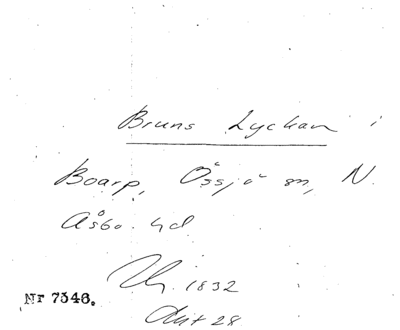 Bruns Lyckan i
Boarp, Össjö sn, N.
Åsbo hd
1832
Nr 7346.
28